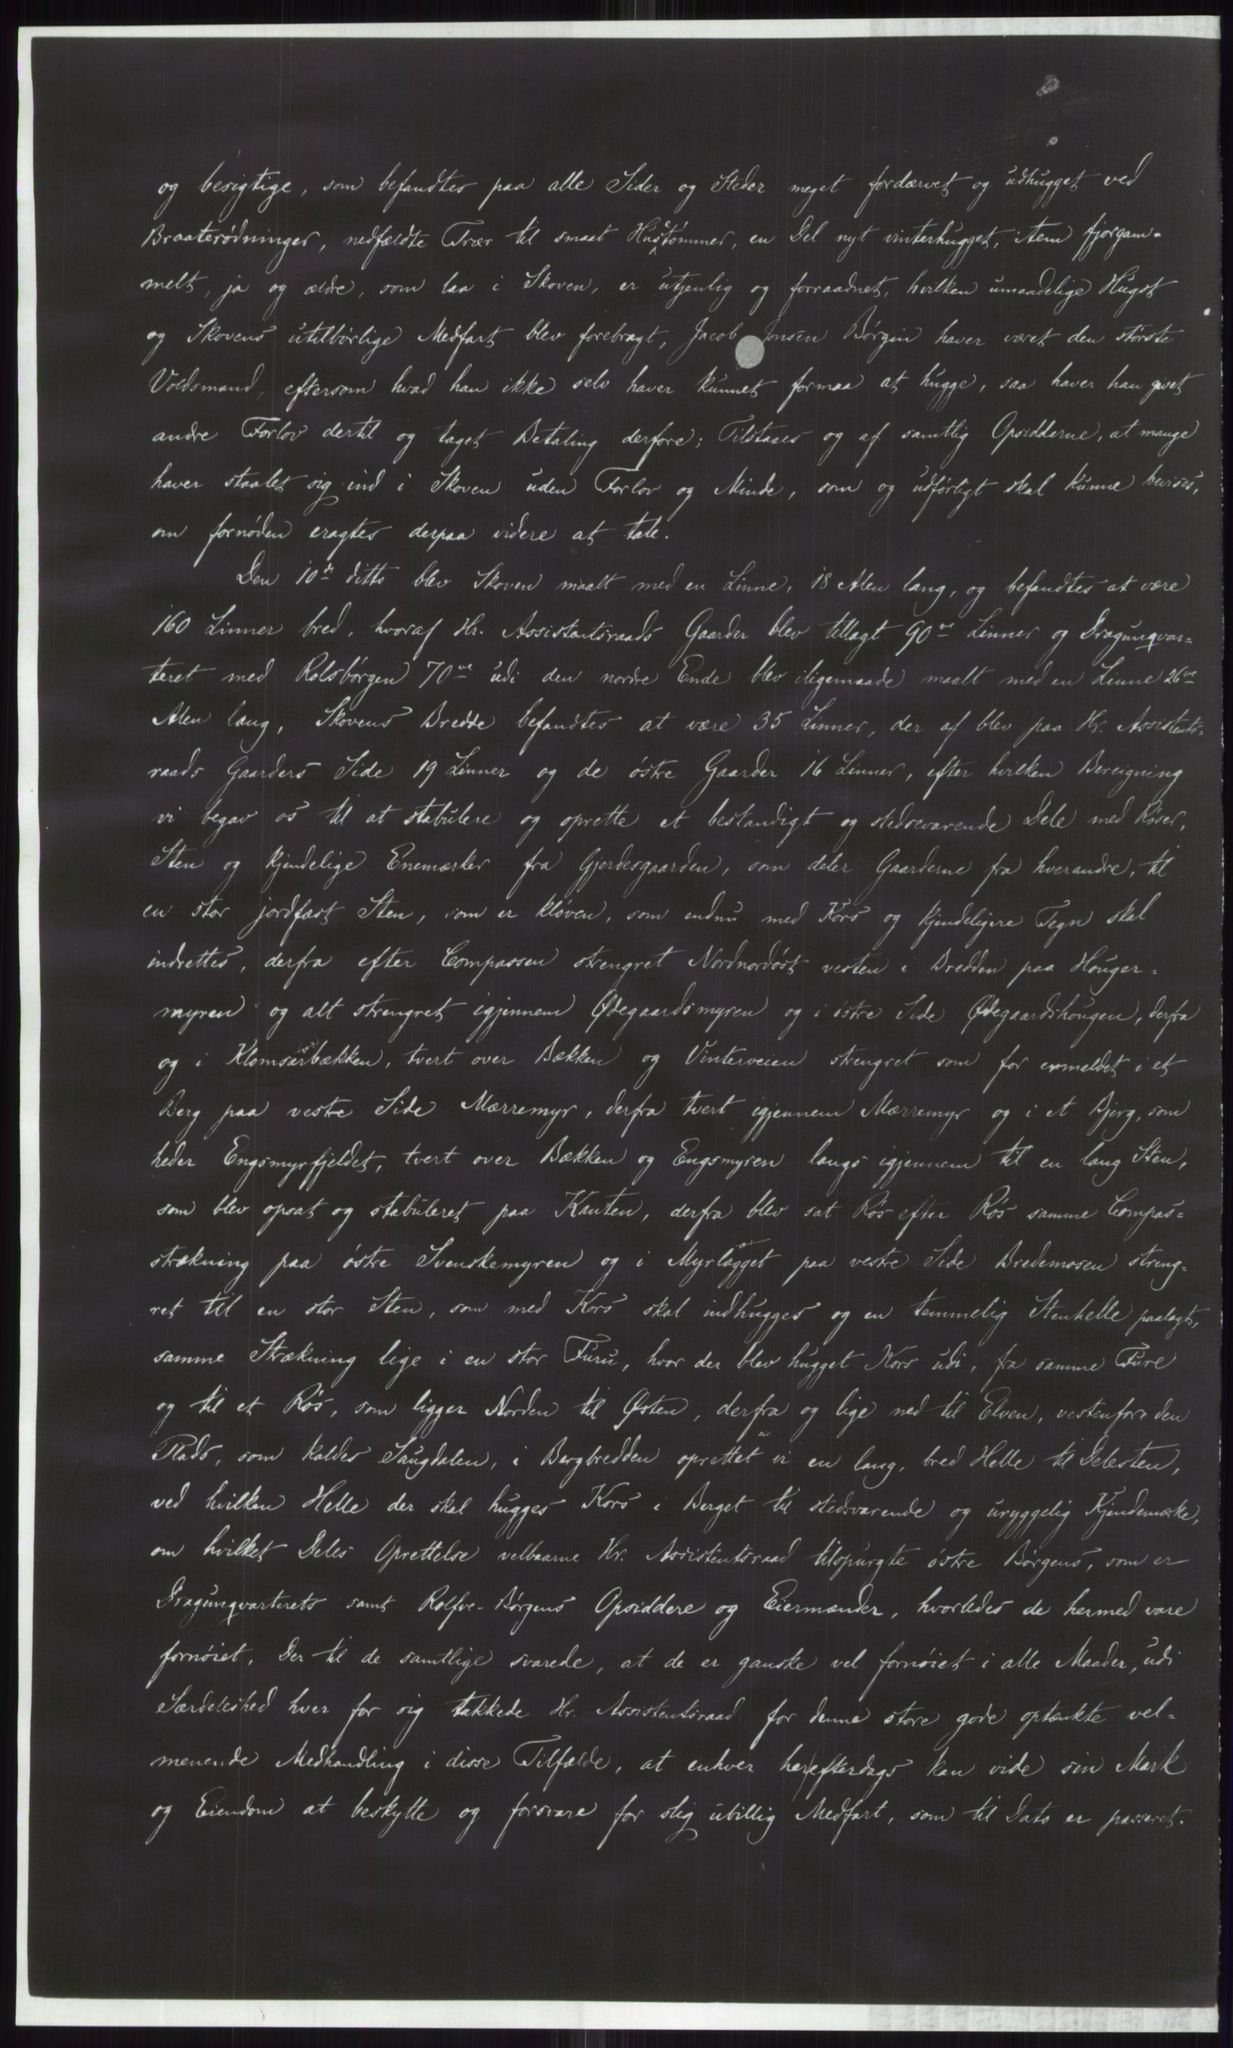 og besigtige, som befandtes paa alle Sider og Steder meget fordærvet og udhugget ved
Braaterødninger, nedfældte Trær til smaat Hustømmer, en Del nyt vinterhugget, item fjorgam-
melt, ja og ældre, som laa i Skoven, er utjenlig og forraadnet, hvilken umandelige Hugst
og Skovens utilbørlige Medfart blev forebragt, Jacob Jonsen Børgin haver været den største
Voldsmand, eftersom hvad han ikke selv haver kunnet formaa at hugge, saa haver han givet
andre Forlov dertil og taget Betaling derfore; Tilstaaes og af samtlig Opsidderne, at mange
haver staalet sig ind i Skoven uden Forlov og Minde, som og udførligt skal kunne bevises,
om fornøden eragtes derpaa videre at tale.
Den 10de ditto blev Skoven maalt med en Linne, 18 Alen lang, og befandtes at være
160 Linner bred, hvoraf Hr. Assistentsraads Gaarder blev tillagt 90ve Linner og Dragunqvar-
teret med Rolsbørgen 70ve udi den nordre Ende blev iligemaade maalt med en Linne 26ve
Alen lang, Skovens Bredde befandtes at være 35 Linner, der af blev paa Hr. Assistents-
raads Gaarders Side 19 Linner og de østre Gaarder 16 Linner, efter hvilken Bereigning
vi begav os til at stabulere og oprette et bestandigt og stedsevarende Dele med Røser,
Sten og kjendelige Enemærker fra Gjerdesgaarden, som deler Gaarderne fra hverandre, til
en stor jordfast Sten, som er kløven, som endnu med Kors og kjendeligere Tegn skal
indrettes, derfra efter Compassen strengret Nordnordøst vesten i Bredden paa Houger-
myren og alt strengret igjennem Ødegaardsmyren og i østre Side Ødegaardshougen, derfra
og i Klomsærbækken, tvert over Bækken og Vinterveien strengret som for ermeldet i et
Berg paa vestre Side Mærremyr, derfra tvert igjennem Mærremyr og i et Bjerg, som
heder Engsmyrfjeldet, tvert over Bækken og Engsmyren langs igjennem til en lang Sten,
som blev opsat og stabuleret paa Kanten, derfra blev sat Røs efter Røs samme Compas-
strækning paa østre Svenskemyren og i Myrlægget paa vestre Side Bredemosen streng-
ret til en stor Sten, som med Kors skal indhugges og en temmelig Stenhelle paalagt,
samme Strækning lige i en stor Furu, hvor der blev hugget Kors udi, fra samme Fure
og til et Røs, som ligger Norden til Østen, derfra og lige ned til Elven, vestenfore den
Plads, som kaldes Saugdalen, i Bergbredden oprettet vi en lang, bred Helle til Delesten,
ved hvilken Helle der skal hugges Kors i Berget til stedsvarende og uryggelig Kjendemærke,
om hvilket Deles Oprettelse velbaarne Hr. Assistentsraad tilspurgte østre Børgens, som er
Dragunqvarterets samt Rolfve-Børgens Opsiddere og Eiermænder, hvorledes de hermed vare
fornøiet. Der til de samtlige svarede, at de er ganske vel fornøiet i alle Maader, udi
Særdeleshed hver for sig takkede Hr. Assistentsraad for denne store gode optænkte vel-
menende Medhandling i disse Tilfælde, at enhver herefterdags kan vide sin Mark
og Eiendom at beskytte og forsvare for slig ubillig Medfart, som til Dato er passeret.